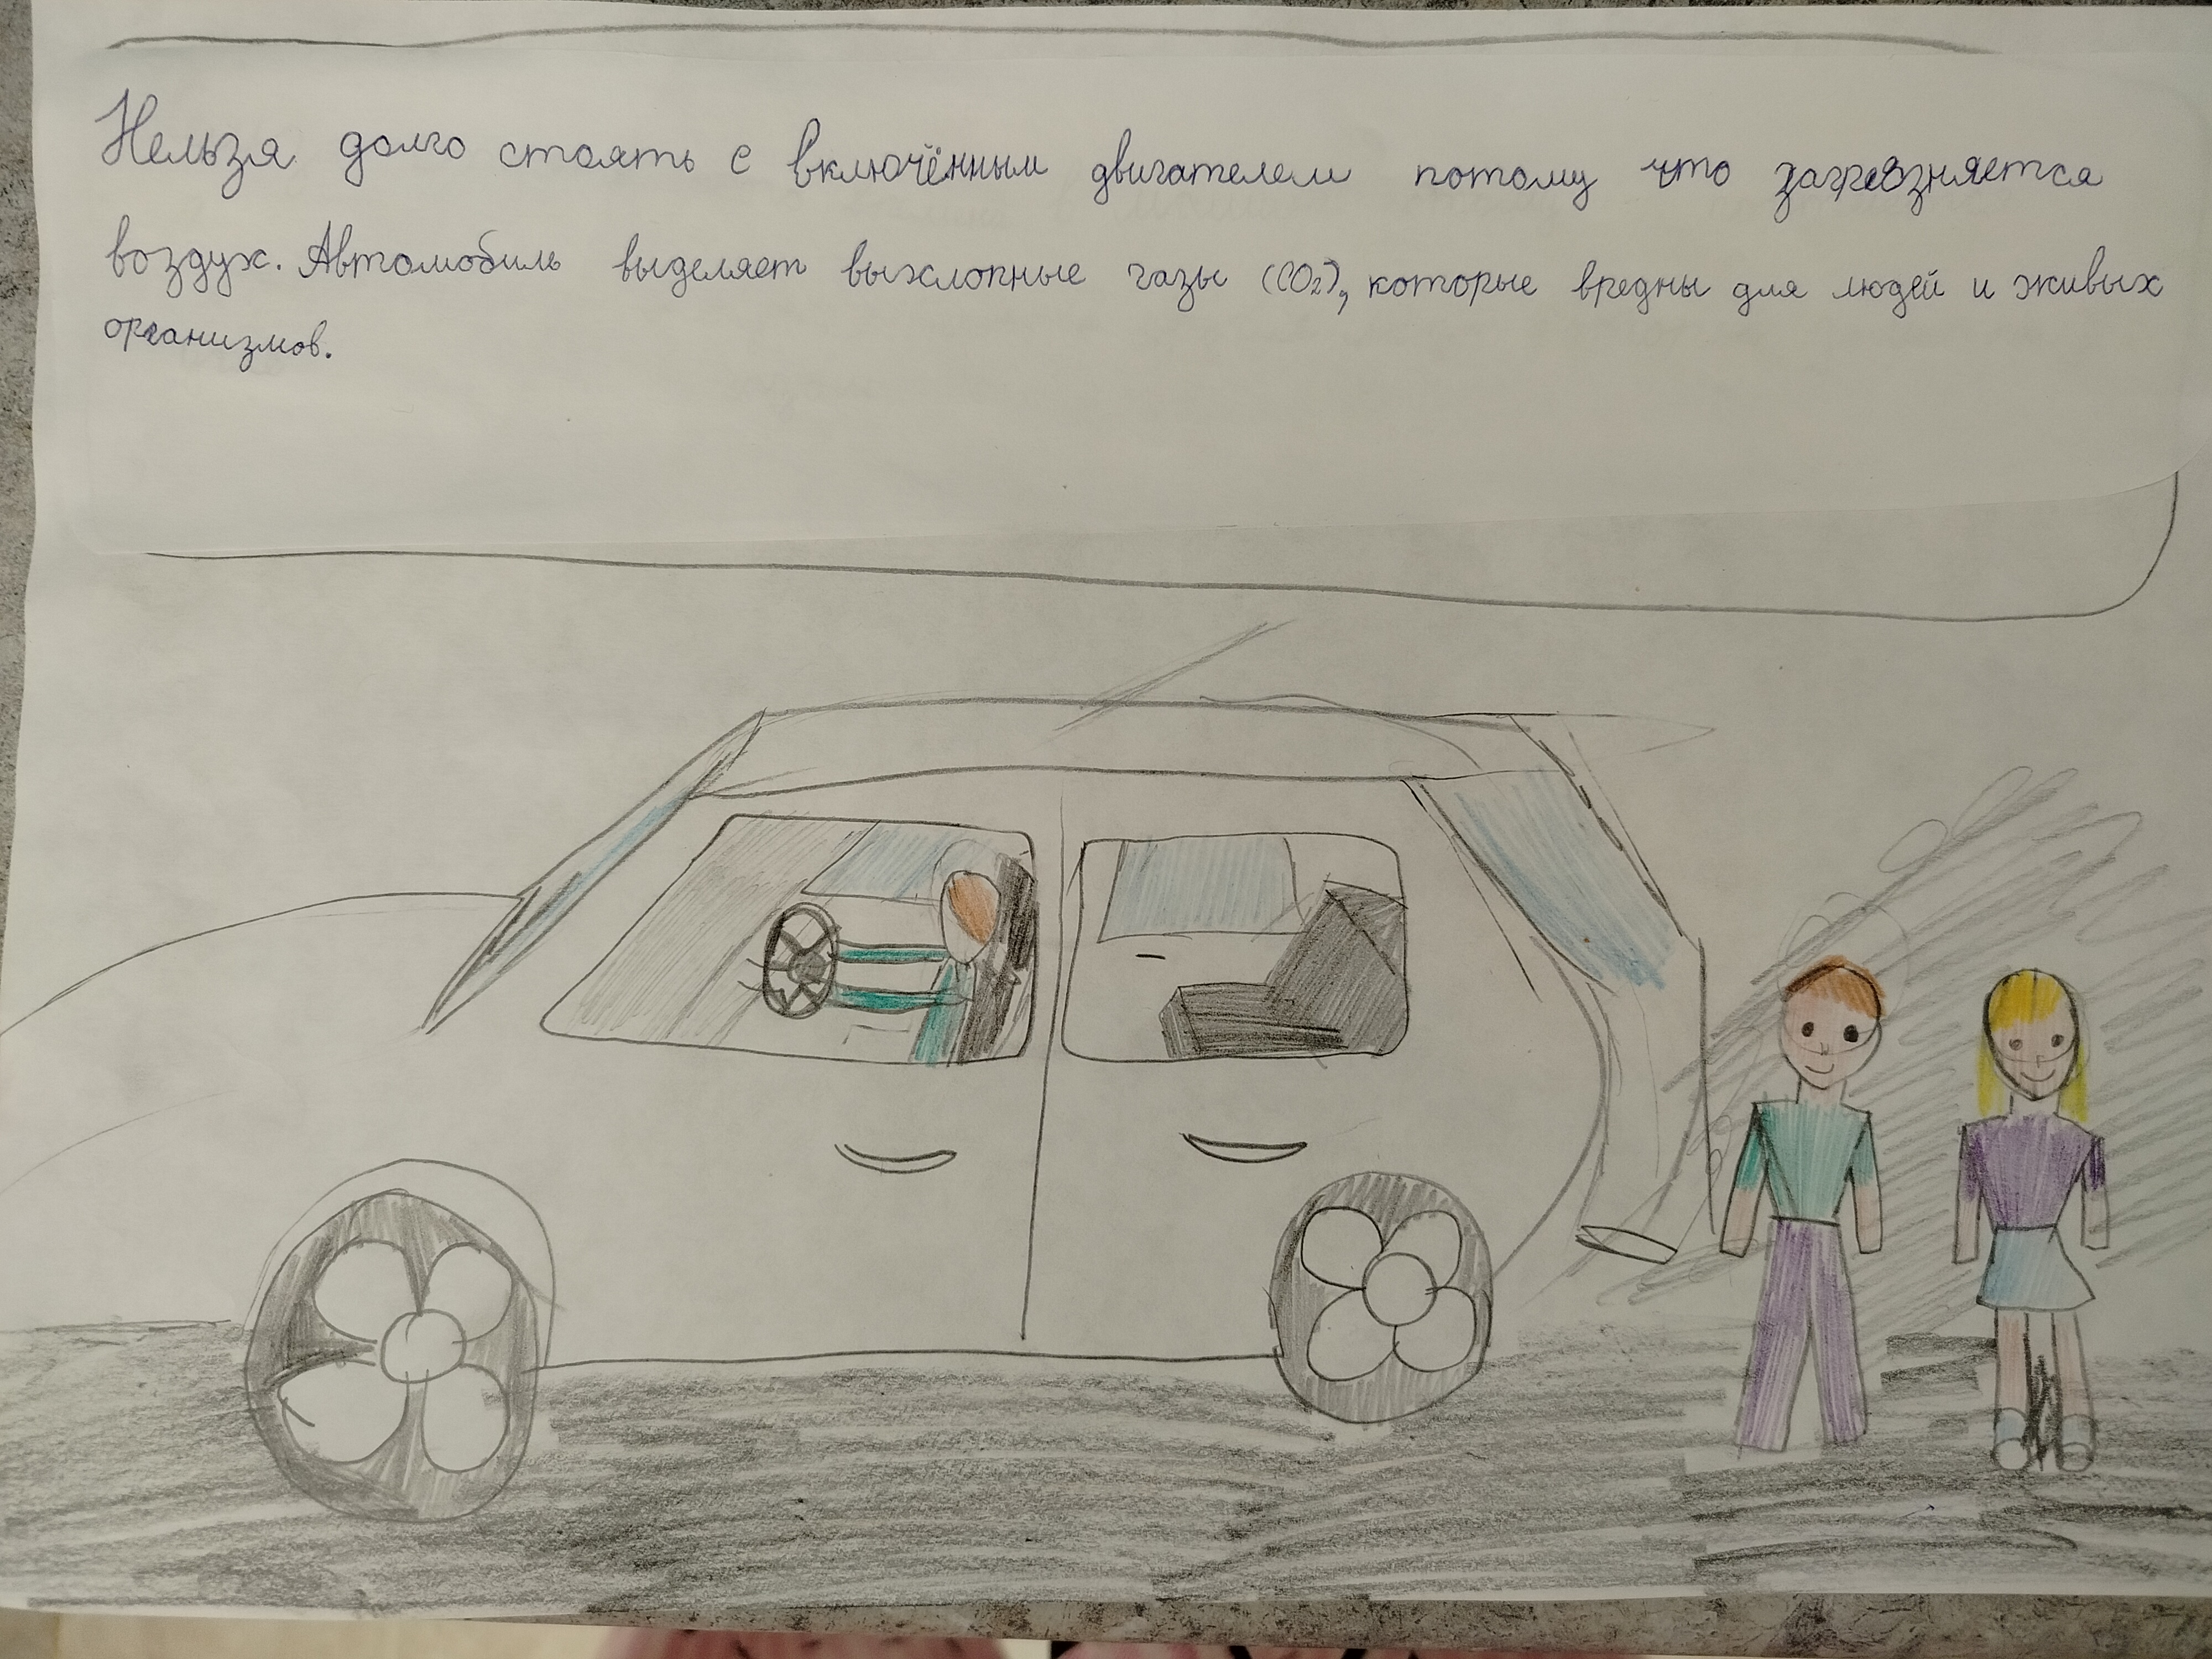 Нельзя долго стоять с включённым двигателем потому что загрезняется
воздух. Автомобиль выделяет выхлопные газы (CO₂), которые вредны для людей и живых
организмов.